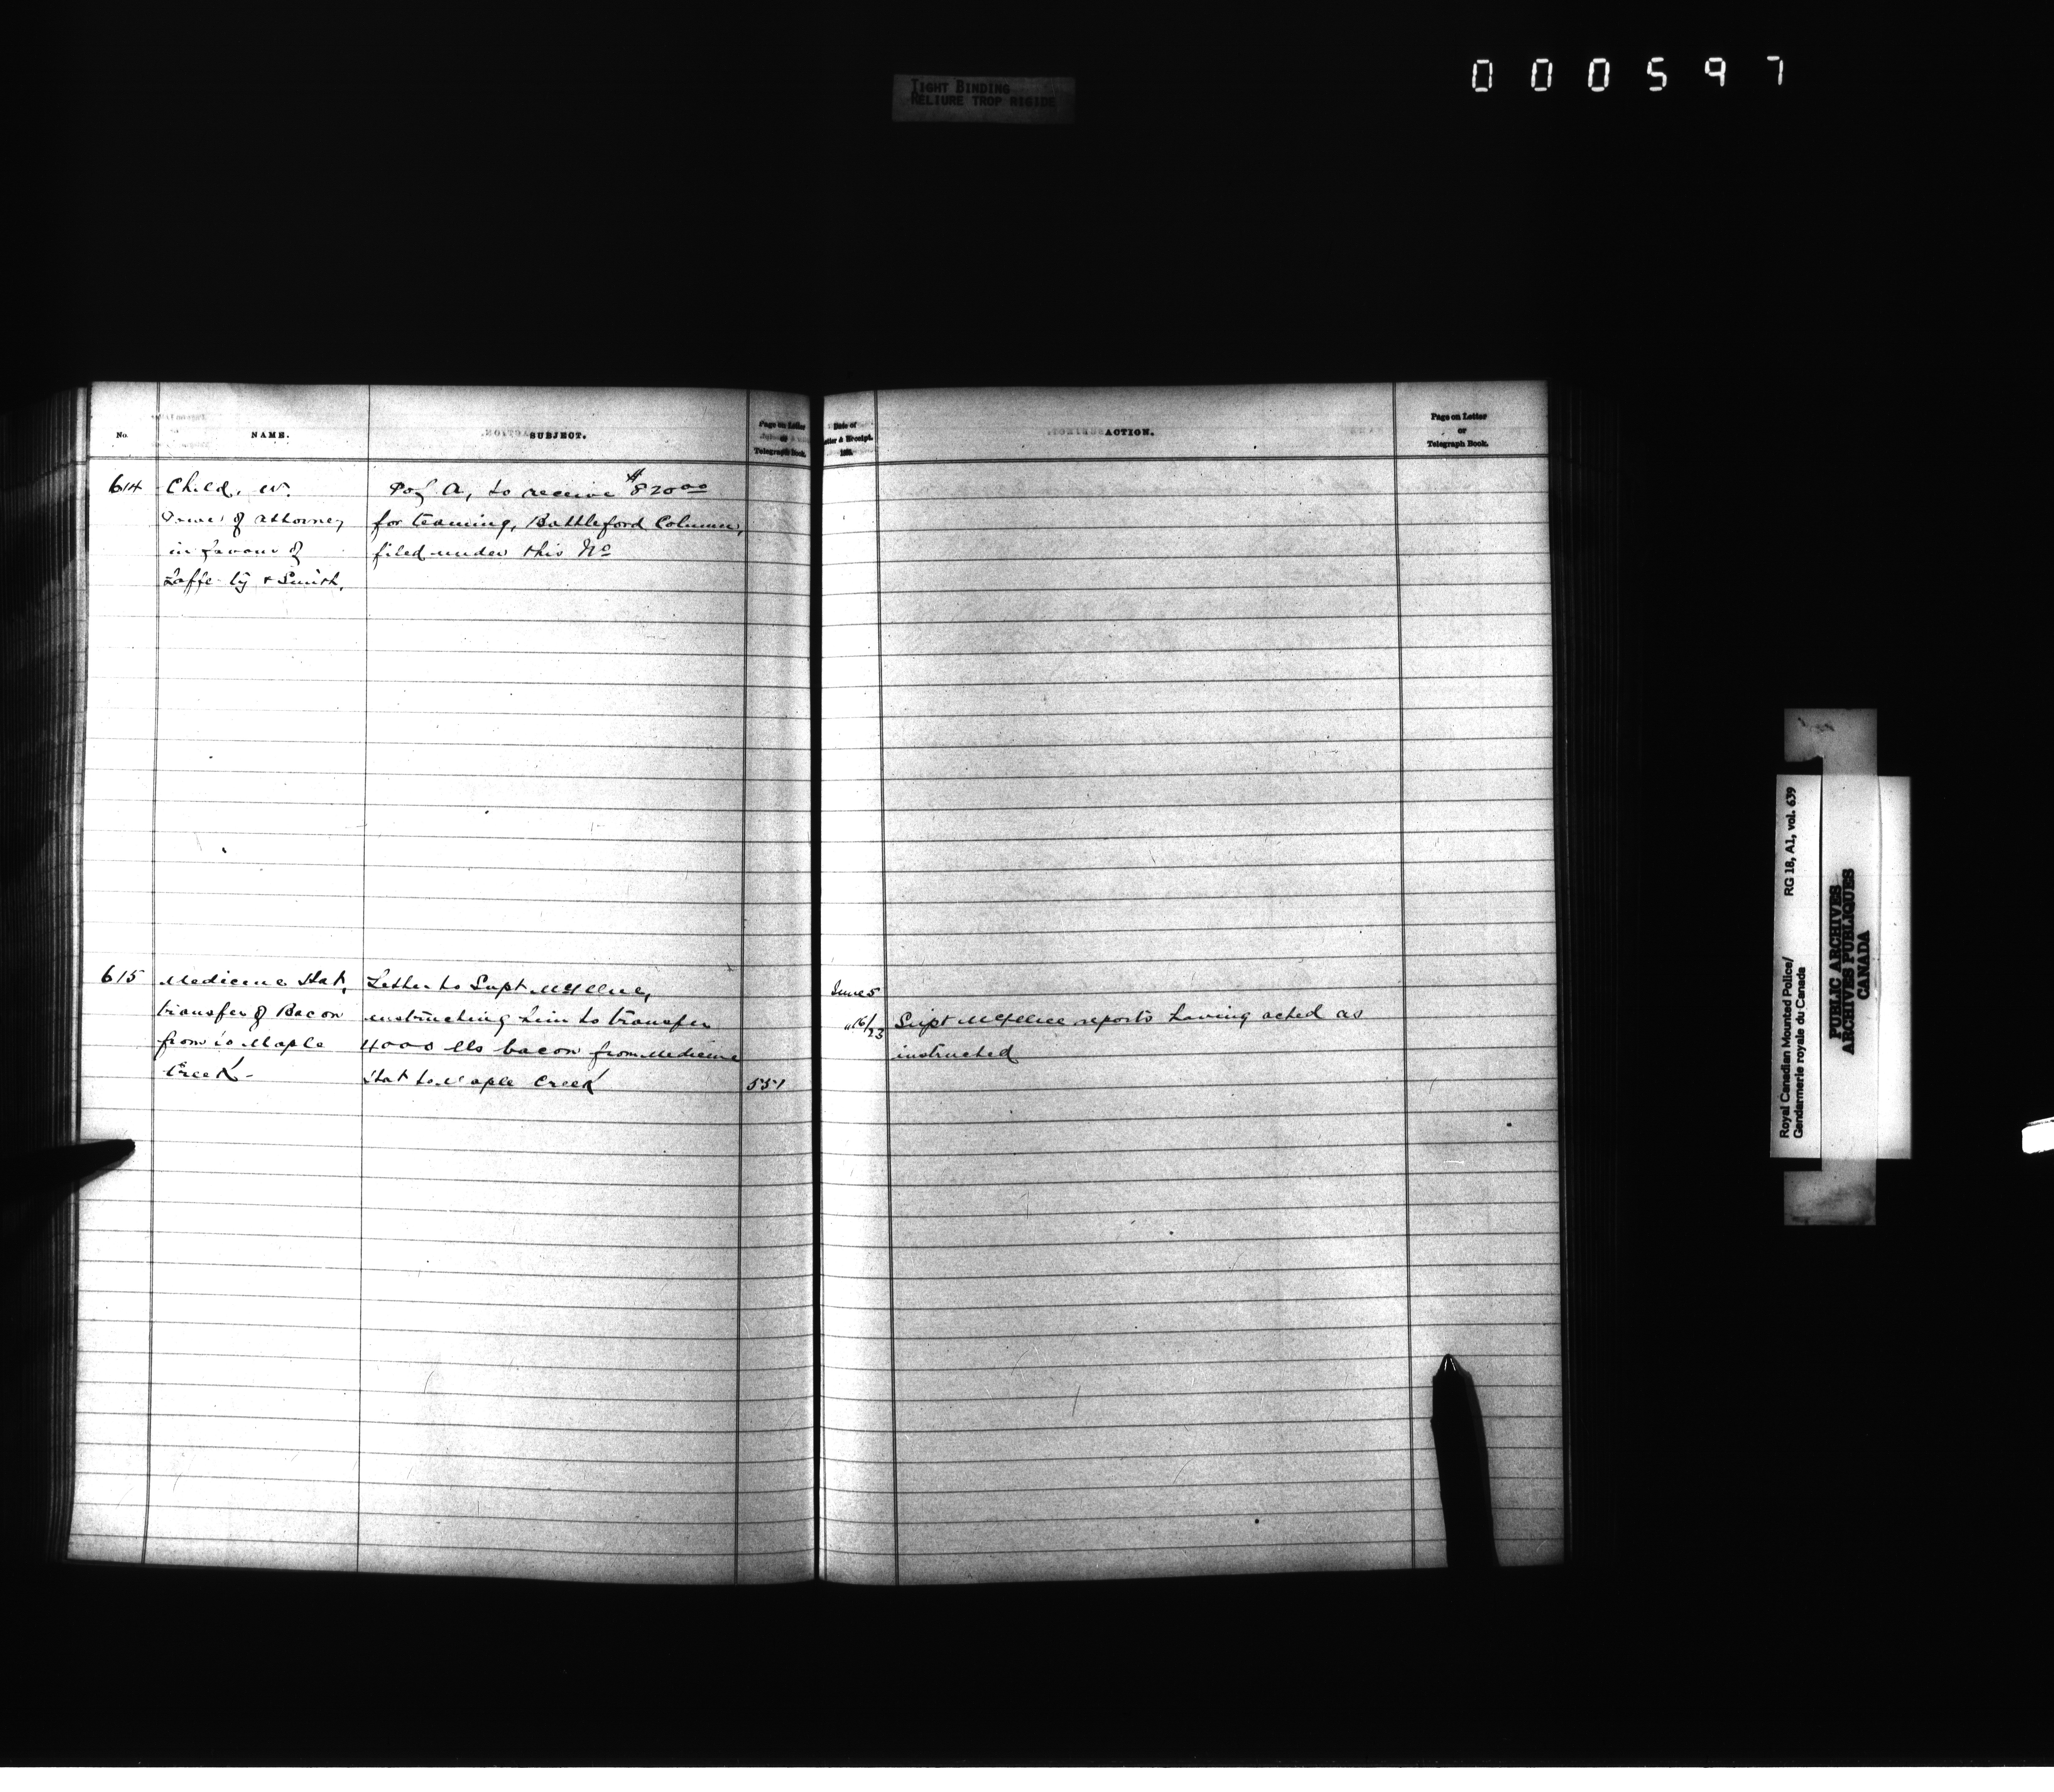 000597
TIGHT BINDING
RELIURE TROP RIGIDE
No.
NAME.
SUBJECT.
Page on Letter
or
Telegraph Book.
Date of
Letter & Receipt.
188
ACTION.
Page on Letter
or
Telegraph Book.
614
Child, W.
Power of attorney
in favour of
Lafferty & Smith.
P of A, to receive $820.00
for teaming, Battleford Column,
filed under this No
615
Medicine Hat,
transfer of Bacon
from to Maple
Creek -
Letter to Supt McIllree,
instructing him to transfer
4000 lbs bacon from Medicine
Hat to Maple Creek
551
June 5
" 16/23
Supt McIllree reports having acted as
instructed
Royal Canadian Mounted Police/
Gendarmerie royale du Canada
RG 18, A1, vol. 639
PUBLIC ARCHIVES
ARCHIVES PUBLIQUES
CANADA